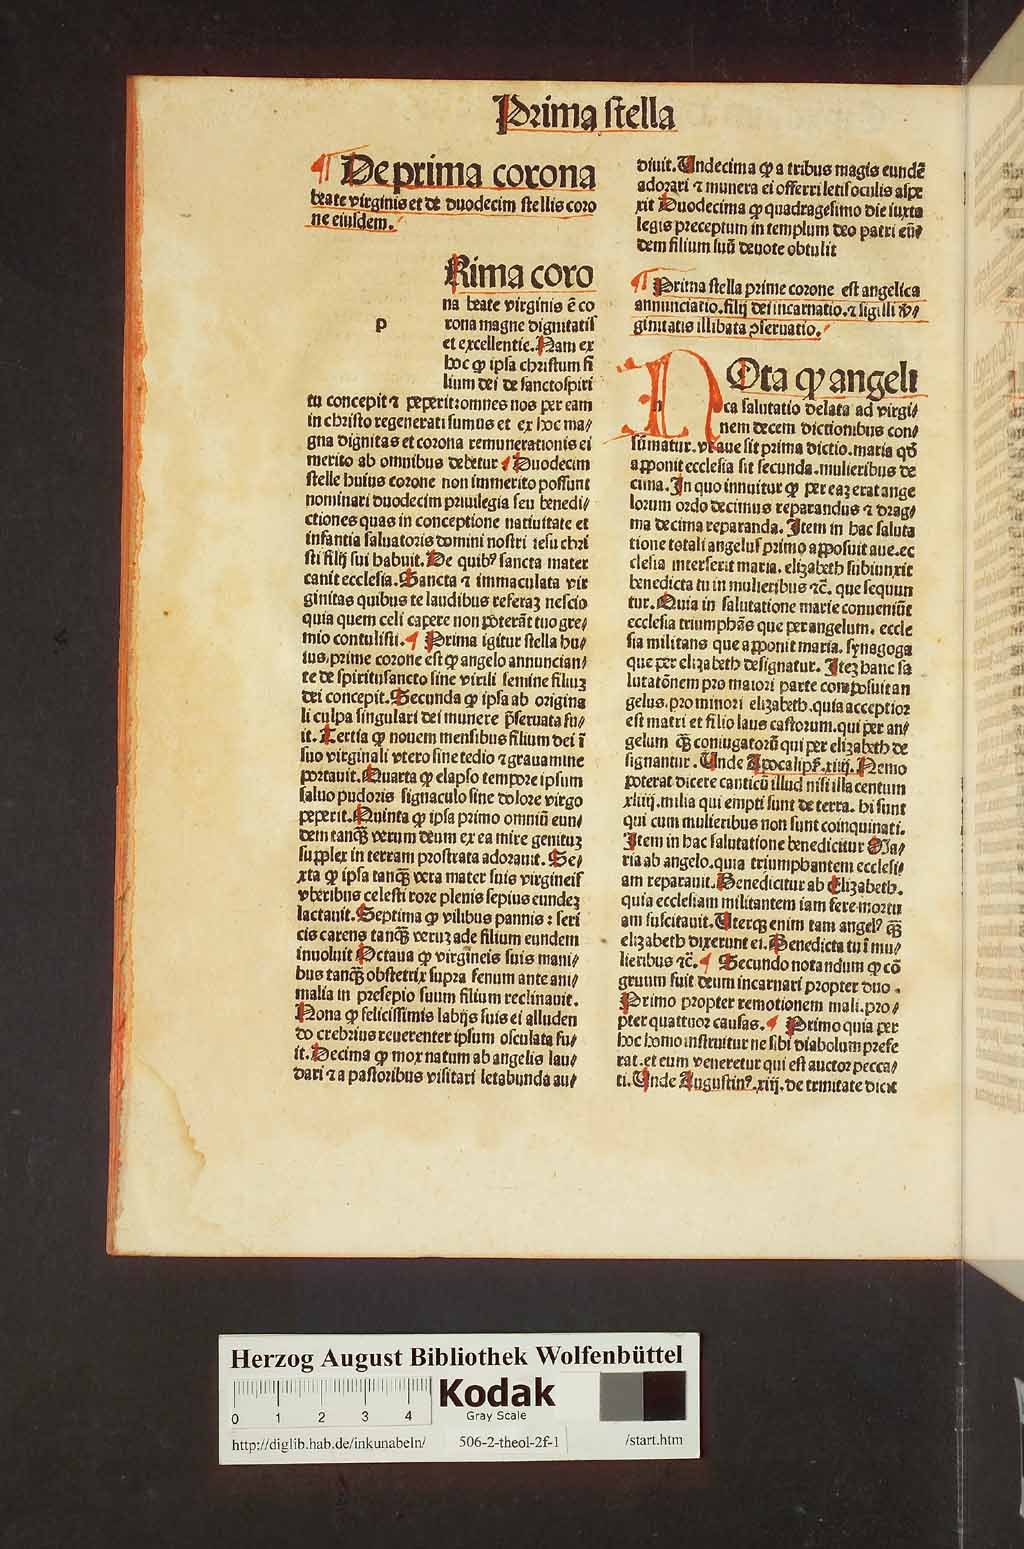 Prima stella
¶ De prima corona
beate virginis et de duodecim stellis coro
ne eiusdem.
Rima coro
na beate virginis ē co
p
rona magne dignitatis
et excellentie. Nam ex
hoc ꝙ ipsa christum fi
lium dei de sanctospiri
tu concepit ⁊ peperit: omnes nos per eam
in christo regenerati sumus et ex hoc ma/
gna dignitas et corona remunerationis ei
merito ab omnibus debetur ¶ Duodecim
stelle huius corone non immerito possunt
nominari duodecim priuilegia seu benedi/
ctiones quas in conceptione natiuitate et
infantia saluatoris domini nostri iesu chri
sti filij sui habuit. De quibꝰ sancta mater
canit ecclesia. Sancta ⁊ immaculata vir
ginitas quibus te laudibus referaꝫ nescio
quia quem celi capere non poterāt tuo gre/
mio contulisti. ¶ Prima igitur stella hu/
ius, prime corone est ꝙ angelo annuncian/
te de spiritusancto sine virili semine filiuꝫ
dei concepit. Secunda ꝙ ipsa ab origina
li culpa singulari dei munere p̄seruata fu/
it. Tertia ꝙ nouem mensibus filium dei ī
suo virginali vtero sine tedio ⁊ grauamine
portauit. Quarta ꝙ elapso tempore ipsum
saluo pudoris signaculo sine dolore virgo
peperit. Quinta ꝙ ipsa primo omniū eun/
dem tanꝗ̄ verum deum ex ea mire genituꝫ
supplex in terram prostrata adorauit. Se/
xta ꝙ ipsa tanꝗ̄ vera mater suis virgineis
vberibus celesti rore plenis sepius eundeꝫ
lactauit. Septima ꝙ vilibus pannis ⁊ seri
cis carens tanꝗ̄ veruꝫ ade filium eundem
inuoluit Octaua ꝙ virgineis suis mani/
bus tanꝗ̄ obstetrix supra fenum ante ani/
malia in presepio suum filium reclinauit.
Nona ꝙ felicissimis labijs suis ei alluden
do crebrius reuerenter ipsum osculata fu/
it. Decima ꝙ mox natum ab angelis lau/
dari ⁊ a pastoribus visitari letabunda au/
diuit. Undecima ꝙ a tribus magis eundē
adorari ⁊ munera ei offerri letis oculis aspe
xit Duodecima ꝙ quadragesimo die iuxta
legis preceptum in templum deo patri eū/
dem filium suū deuote obtulit
¶ Prima stella prime corone est angelica
annunciatio. filij dei incarnatio. ⁊ sigilli v̄/
ginitatis illibata p̱seruatio.
n
Ota ꝙ angeli
ca salutatio delata ad virgi/
nem decem dictionibus con/
sūmatur. vt aue sit prima dictio. maria qd̄
apponit ecclesia sit secunda. mulieribus de
cima. In quo innuitur ꝙ per eaꝫ erat ange
lorum ordo decimus reparandus ⁊ drag/
ma decima reparanda. Item in hac saluta
tione totali angelus primo apposuit aue. ec
clesia interserit maria. elizabeth subiunxit
benedicta tu in mulieribus ⁊c̄. que sequun
tur. Quia in salutatione marie conueniūt
ecclesia triumphās que per angelum. eccle
sia militans que apponit maria. synagoga
que per elizabeth designatur. Iteꝫ hanc sa
lutatōnem pro maiori parte composuit an
gelus. pro minori elizabeth. quia acceptior
est matri et filio laus castorum. qui per an/
gelum ꝗ̄ coniugatorū qui per elizabeth de
signantur. Unde Apocalipẜ. xiiij. Nemo
poterat dicere canticū illud nisi illa centum
xliiij. milia qui empti sunt de terra. hi sunt
qui cum mulieribus non sunt coinquinati.
Item in hac salutatione benedicitur Ma/
ria ab angelo. quia triumphantem ecclesi/
am reparauit. Benedicitur ab Elizabeth.
quia ecclesiam militantem iam fere mortu
am suscitauit. Uterqꝫ enim tam angelꝰ ꝗ̄
elizabeth dixerunt ei. Benedicta tu ī mu/
lieribus ⁊c̄. ¶ Secundo notandum ꝙ cō
gruum fuit deum incarnari propter duo.
Primo propter remotionem mali. pro/
pter quattuor causas. ¶ Primo quia per
hoc homo instruitur ne sibi diabolum prefe
rat. et eum veneretur qui est auctor pecca/
ti. Unde Augustinꝰ. xiij. de trinitate dicit
Herzog August Bibliothek Wolfenbüttel
0 1 2 3 4
Kodak
Gray Scale
http://diglib.hab.de/inkunabeln/ 506-2-theol-2f-1 /start.htm